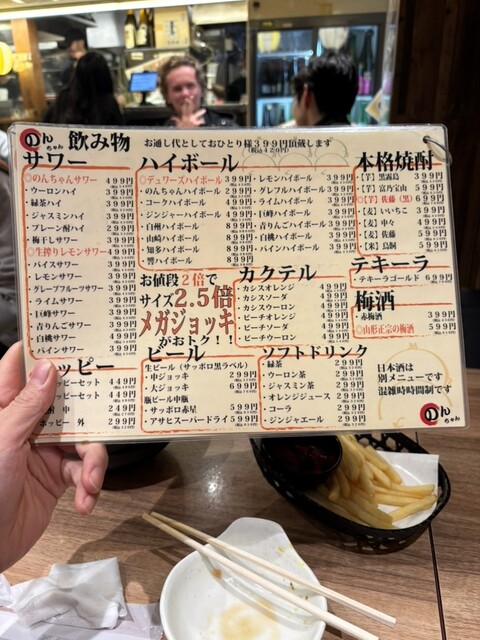 のんちゃん 飲み物
お通し代としておひとり様399円頂戴します
サワー
◎のんちゃんサワー 499円
・ウーロンハイ 399円
・緑茶ハイ 399円
・ジャスミンハイ 399円
・プレーン酎ハイ 299円
・梅干しサワー 399円
◎生搾りレモンサワー 499円
・バイスサワー 399円
・レモンサワー 399円
・グレープフルーツサワー 399円
・ライムサワー 399円
・巨峰サワー 399円
・青りんごサワー 399円
・白桃サワー 499円
・パインサワー 399円
ホッピー
ホッピーセット 449円
ホッピーセット 449円
中 249円
ホッピー 外 299円
ハイボール
◎デュワーズハイボール 399円
・のんちゃんハイボール 299円
・コークハイボール 499円
・ジンジャーハイボール 499円
・白州ハイボール 899円
・山崎ハイボール 899円
・知多ハイボール 899円
・響ハイボール 899円
・レモンハイボール 399円
・グレフルハイボール 399円
・ライムハイボール 399円
・巨峰ハイボール 399円
・青りんごハイボール 399円
・白桃ハイボール 399円
・パインハイボール 399円
お値段2倍で
サイズ2.5倍
メガジョッキ
がおトク!!
カクテル
・カシスオレンジ 499円
・カシスソーダ 499円
・カシスウーロン 499円
・ピーチオレンジ 499円
・ピーチソーダ 499円
・ピーチウーロン 499円
ビール
生ビール(サッポロ黒ラベル)
・中ジョッキ 299円
・大ジョッキ 699円
瓶ビール中瓶
・サッポロ赤星 599円
・アサヒスーパードライ 599円
ソフトドリンク
・緑茶 299円
・ウーロン茶 299円
・ジャスミン茶 299円
・オレンジジュース 299円
・コーラ 299円
・ジンジャエール 299円
本格焼酎
・【芋】黒霧島 399円
・【芋】富乃宝山 599円
・【芋】佐藤(黒) 699円
・【麦】いいちこ 399円
・【麦】中々 499円
・【麦】佐藤 599円
・【米】鳥飼 599円
テキーラ
・テキーラゴールド 699円
梅酒
・赤梅酒 399円
◎山形正宗の梅酒 599円
日本酒は
別メニューです
混雑時時間制です
のんちゃん